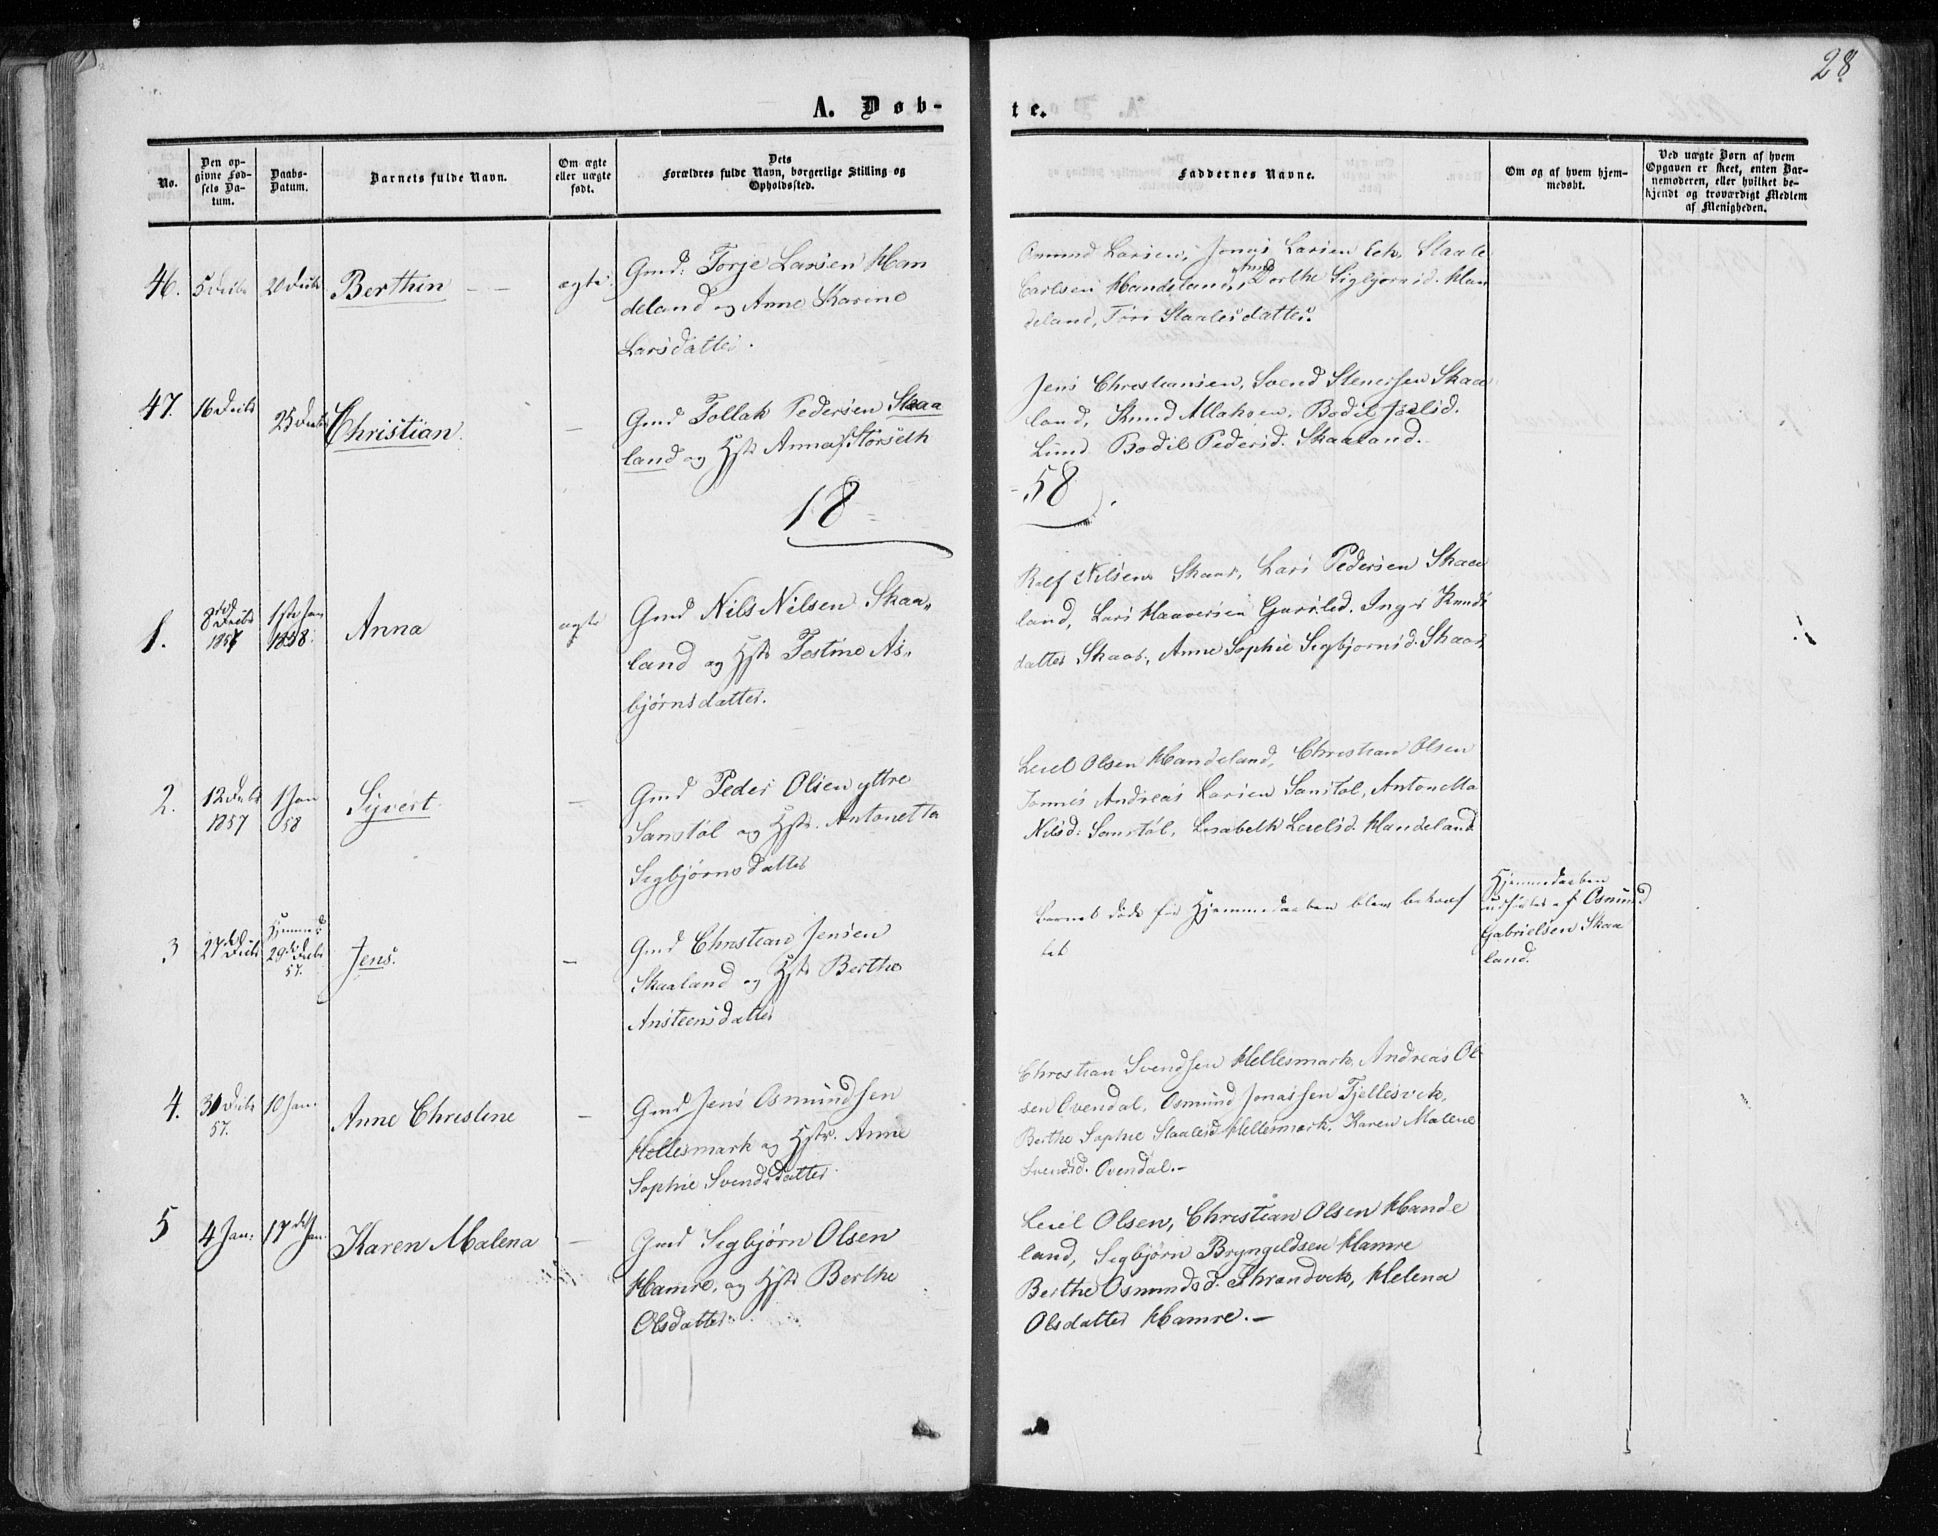 28
A. Døb-
te.
No.
Den op-
givne Fød-
sels Da-
tum.
Daabs-
Datum.
Barnets fulde Navn.
Om ægte
eller uægte
født.
Dets
Forældres fulde Navn, borgerlige Stilling og
Opholdssted.
Faddernes Navne.
Om og af hvem hjem-
medøbt.
Ved uægte Børn af hvem
Opgaven er skeet, enten Bar-
nemoderen, eller hvilket be-
kjendt og troværdigt Medlem
af Menigheden.
46.
5 Decbr
20 Decbr
Berthin
ægte
Gmd: Torje Larsen Han
deland og Anne Karine
Larsdatter.
Osmund Larsen, Jonas Larsen Eek, Staale
Carlsen Handeland, Anne Dorthe Sigbjørnsd. Han
deland, Tori Staalesdatter.
47.
16 Decbr
25 Decbr
Christian
—
Gmd Tollak Pedersen Skaa
land og Hst Anna Storseth
Jens Christiansen, Svend Stenersen Skaa
land, Knud Allaksen, Bodil
Lund Bodil Pedersd. Skaaland.
18
-58
1.
8de Decbr
1857
1ste Jan
1858.
Anna
ægte
Gmd Nils Nilsen Skaa„
land og Hstr Testine As„
bjørnsdatter.
Rolf Nilsen Skaar, Lars Pedersen Skaa
land, Lars Haaversen Gursled. Inger Knuds
datter Skaar, Anne Sophie Sigbjørnsd. Skaar,
2.
12 Decbr
1857
1 Jan
58
Syvert
—
Gmd Peder Olsen yttre
Sanstøl og Hstr. Antonetta
Sigbjørnsdatter
Leiel Olsen Handeland, Christian Olsen
Tonnes Andreas Larsen Sanstøl, Antonetta
Nilsd: Sanstøl, Lisabeth Leielsd. Handeland
3
27de Decbr
Hjemmed
29de Decbr
57.
Jens.
—
Gmd Christian Jensen
Skaaland og Hstr Berthe
Ansteensdatter
Barnet døde før Hjemmedaaben blev bekræf
tet
Hjemmedaaben
udførtes af Osmund
Gabrielsen Skaa
land.
4.
30 Decbr
57.
10 Jan.
Anne Christine
—
Gmd Jens Osmundsen
Hellesmark og Hstr. Anne
Sophie Svendsdatter
Christian Svendsen Hellesmark, Andreas Ol
sen Ovendal, Osmund Jonassen Fjellesvek,
Berthe Sophie Staalesd Hellesmark, Karen Malene
Svendsd. Ovendal.-
5
4 Jan.
17de Jan.
Karen Malena
—
Gmd Sigbjørn Olsen
Hamre, og Hstr Berthe
Olsdatter
Leiel Olsen, Christian Olsen Hande
land, Sigbjørn Bryngeldsen Hamre
Berthe Osmundsd. Thrandvek, Helena
Olsdatter Hamre.—